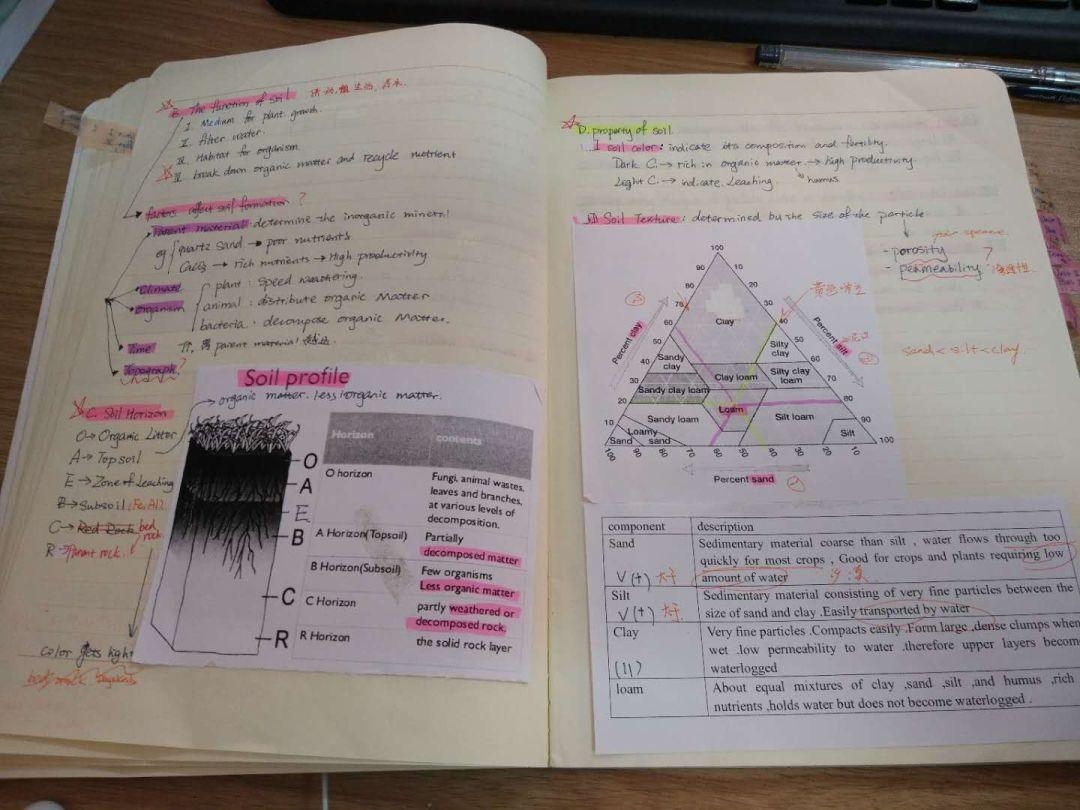 B. The function of soil
I. Medium for plant growth.
II. Filter water.
III. Habitat for organism
IV. break down organic matter and recycle nutrient
factors affect soil formation ?
Parent material: determine the inorganic mineral
eg quartz sand → poor nutrients
CaCO3 → rich nutrients → High productivity
Climate
organism
plant : speed weathering.
animal : distribute organic Matter
bacteria : decompose organic Matter.
Time
parent material
Topograph ?
Soil profile
organic matter. less inorganic matter.
C. Soil Horizon
O → Organic Litter
A → Topsoil
E → Zone of Leaching
B → Subsoil (Fe, Al)
C → Red Rock bed rock.
R → Parent rock.
color gets light
O
A
E
B
C
R
Horizon contents
O horizon Fungi, animal wastes,
leaves and branches,
at various levels of
decomposition.
A Horizon(Topsoil) Partially
decomposed matter
B Horizon(Subsoil) Few organisms
Less organic matter
C Horizon partly weathered or
decomposed rock.
R Horizon the solid rock layer
D. property of soil
I soil color : indicate its composition and fertility.
Dark C. → rich in organic matter → high productivity
humus
Light C. → indicate Leaching.
II Soil Texture : determined by the size of the particle
- porosity
- permeability ?
sand < silt < clay
100
90 10
80 20
70 30
60 40
50 50
40 60
30 70
20 80
10 90
100
Percent clay
Percent silt
Clay
Silty clay
Sandy clay
Clay loam
Silty clay loam
Sandy clay loam
Loam
Sandy loam
Silt loam
Loamy sand
Sand
Silt
100 90 80 70 60 50 40 30 20 10
Percent sand
component description
Sand Sedimentary material coarse than silt , water flows through too
quickly for most crops , Good for crops and plants requiring low
V(+) 大于 amount of water
Silt Sedimentary material consisting of very fine particles between the
V(+) 大于 size of sand and clay .Easily transported by water
Clay Very fine particles .Compacts easily .Form large ,dense clumps when
wet .low permeability to water .therefore upper layers become
waterlogged
loam About equal mixtures of clay ,sand ,silt ,and humus ,rich
nutrients ,holds water but does not become waterlogged .